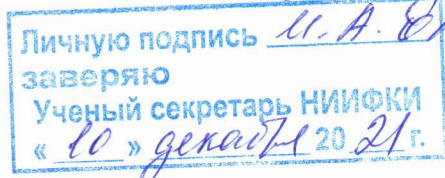 Личную подпись И. А.
заверяю
Ученый секретарь НИИФКИ
« 10 » декабря 20 21 г.